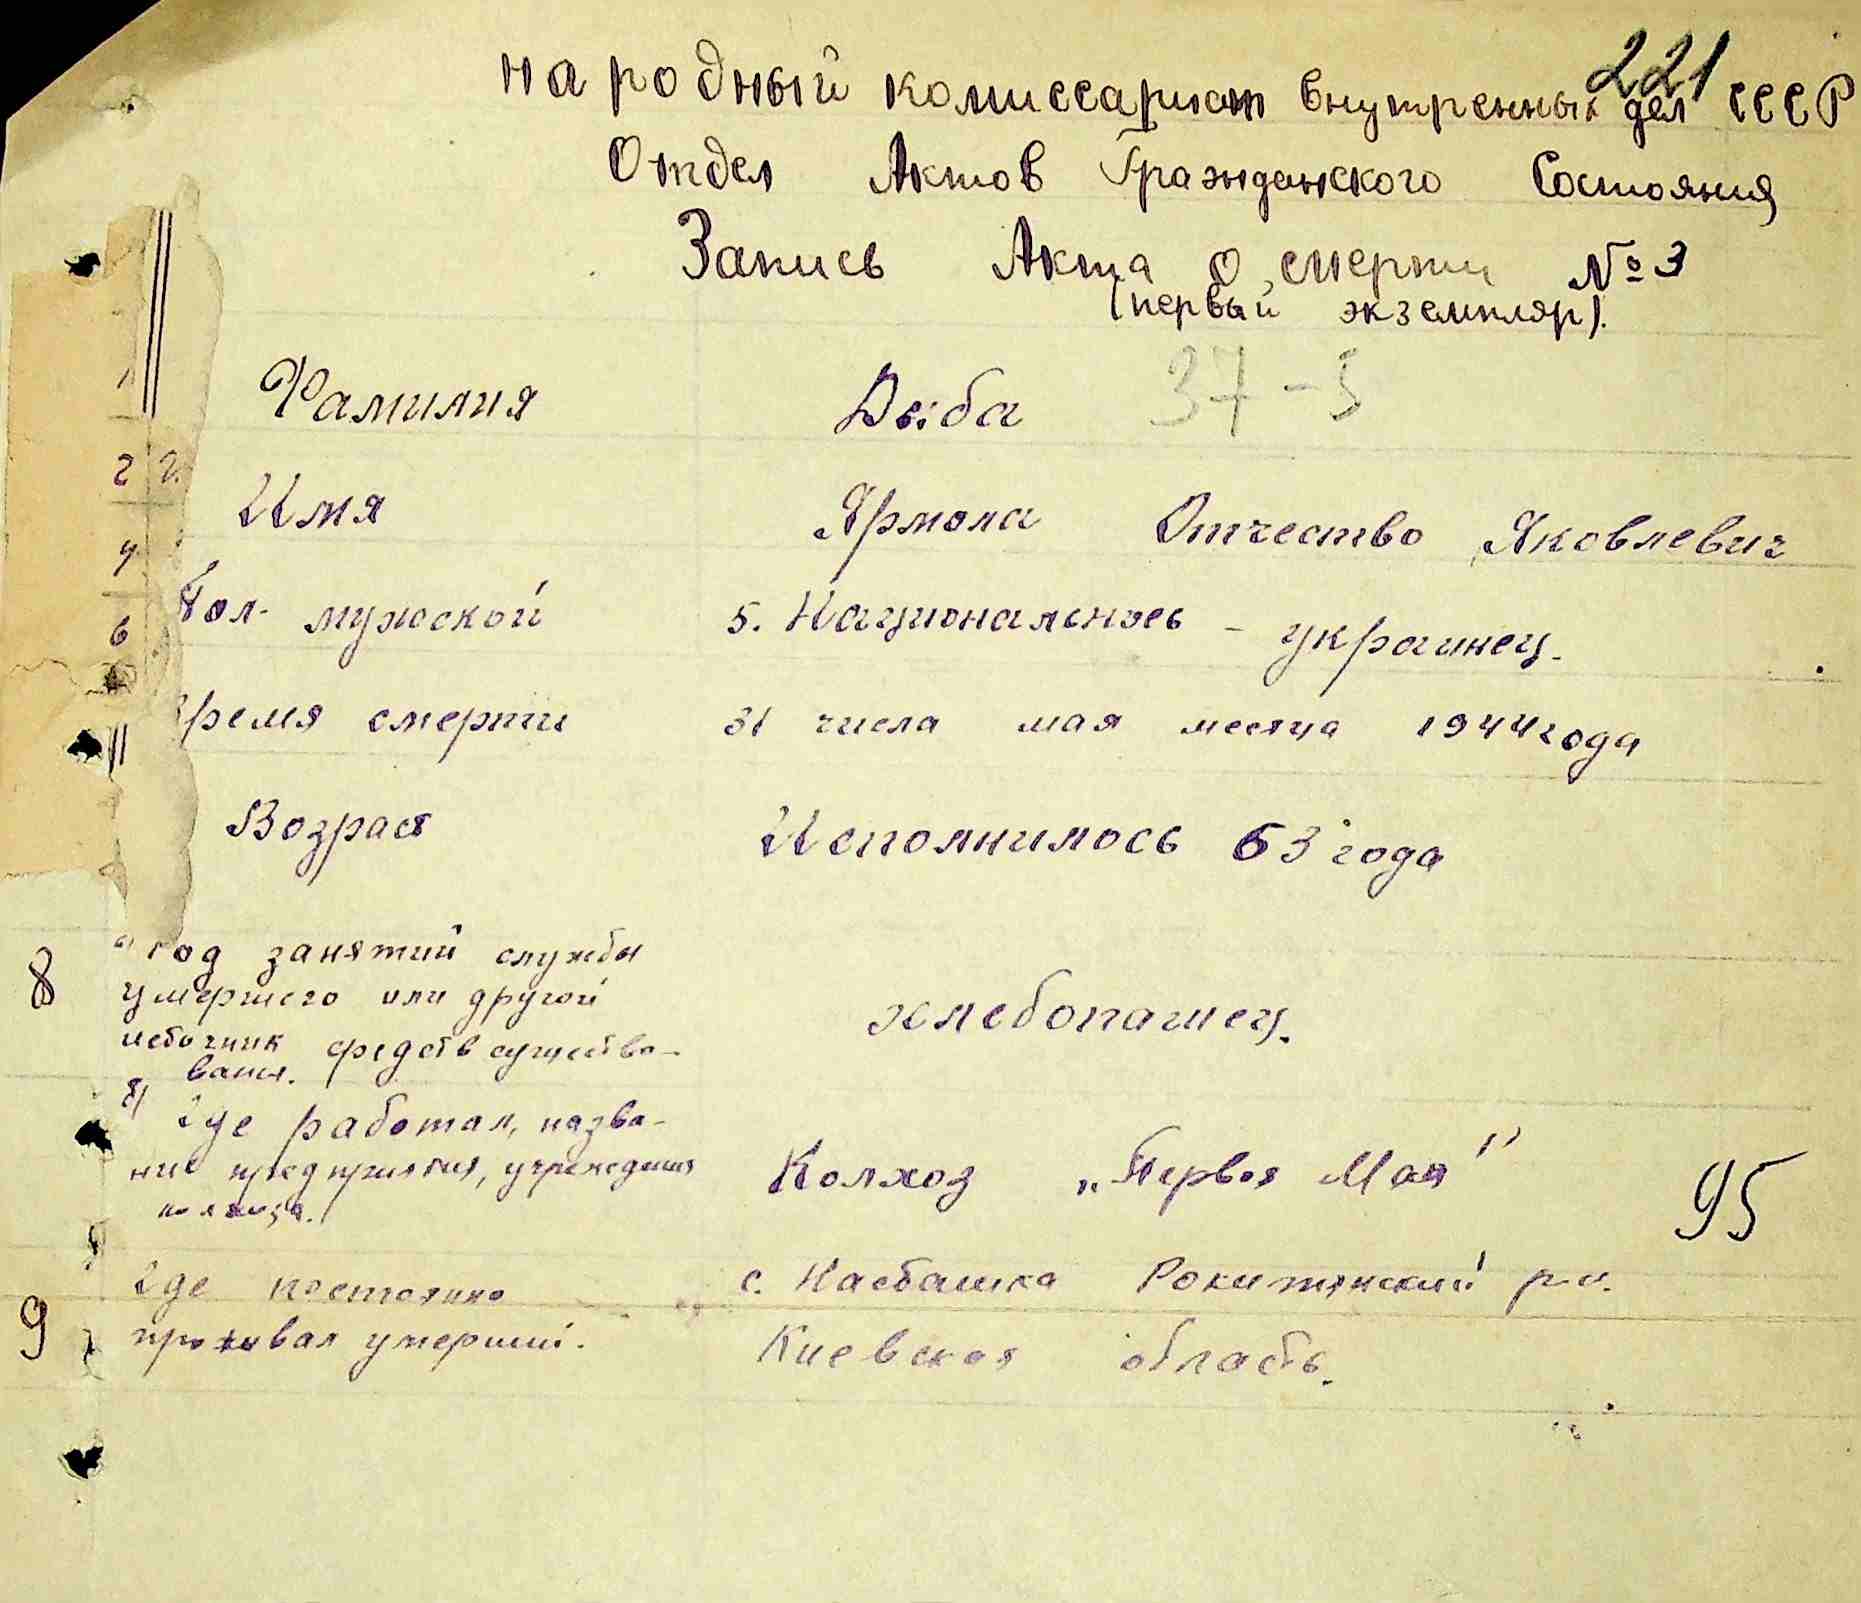 221
Народный комиссариат внутренных дел СССР
Отдел Актов Гражданского Состояния
Запись Акта о смерти № 3
(первый экземпляр).
Фамилия Дыба 37-5
2 2. Имя Ярмола Отчество Яковлевич
4 Пол- мужской 5. Национальность - украинец.
6 Время смерти 31 числа мая месяца 1944 года
Возраст Исполнилось 63 года
8 а) род занятий службы
умершего или другой
источник средств существо-
вания. хлебопашец.
б) Где работал, назва-
ние предприятия, учреждения
колхоза. Колхоз „Первая Мая" 95
9 Где постоянно с. Насташка Рокитянский р-н.
проживал умерший. Киевская область.